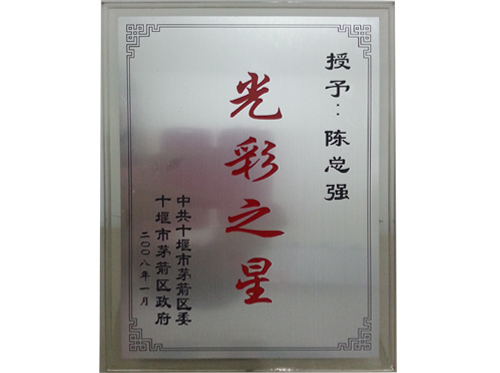 授予：陈总强
光彩之星
中共十堰市茅箭区委
十堰市茅箭区政府
二〇〇八年一月